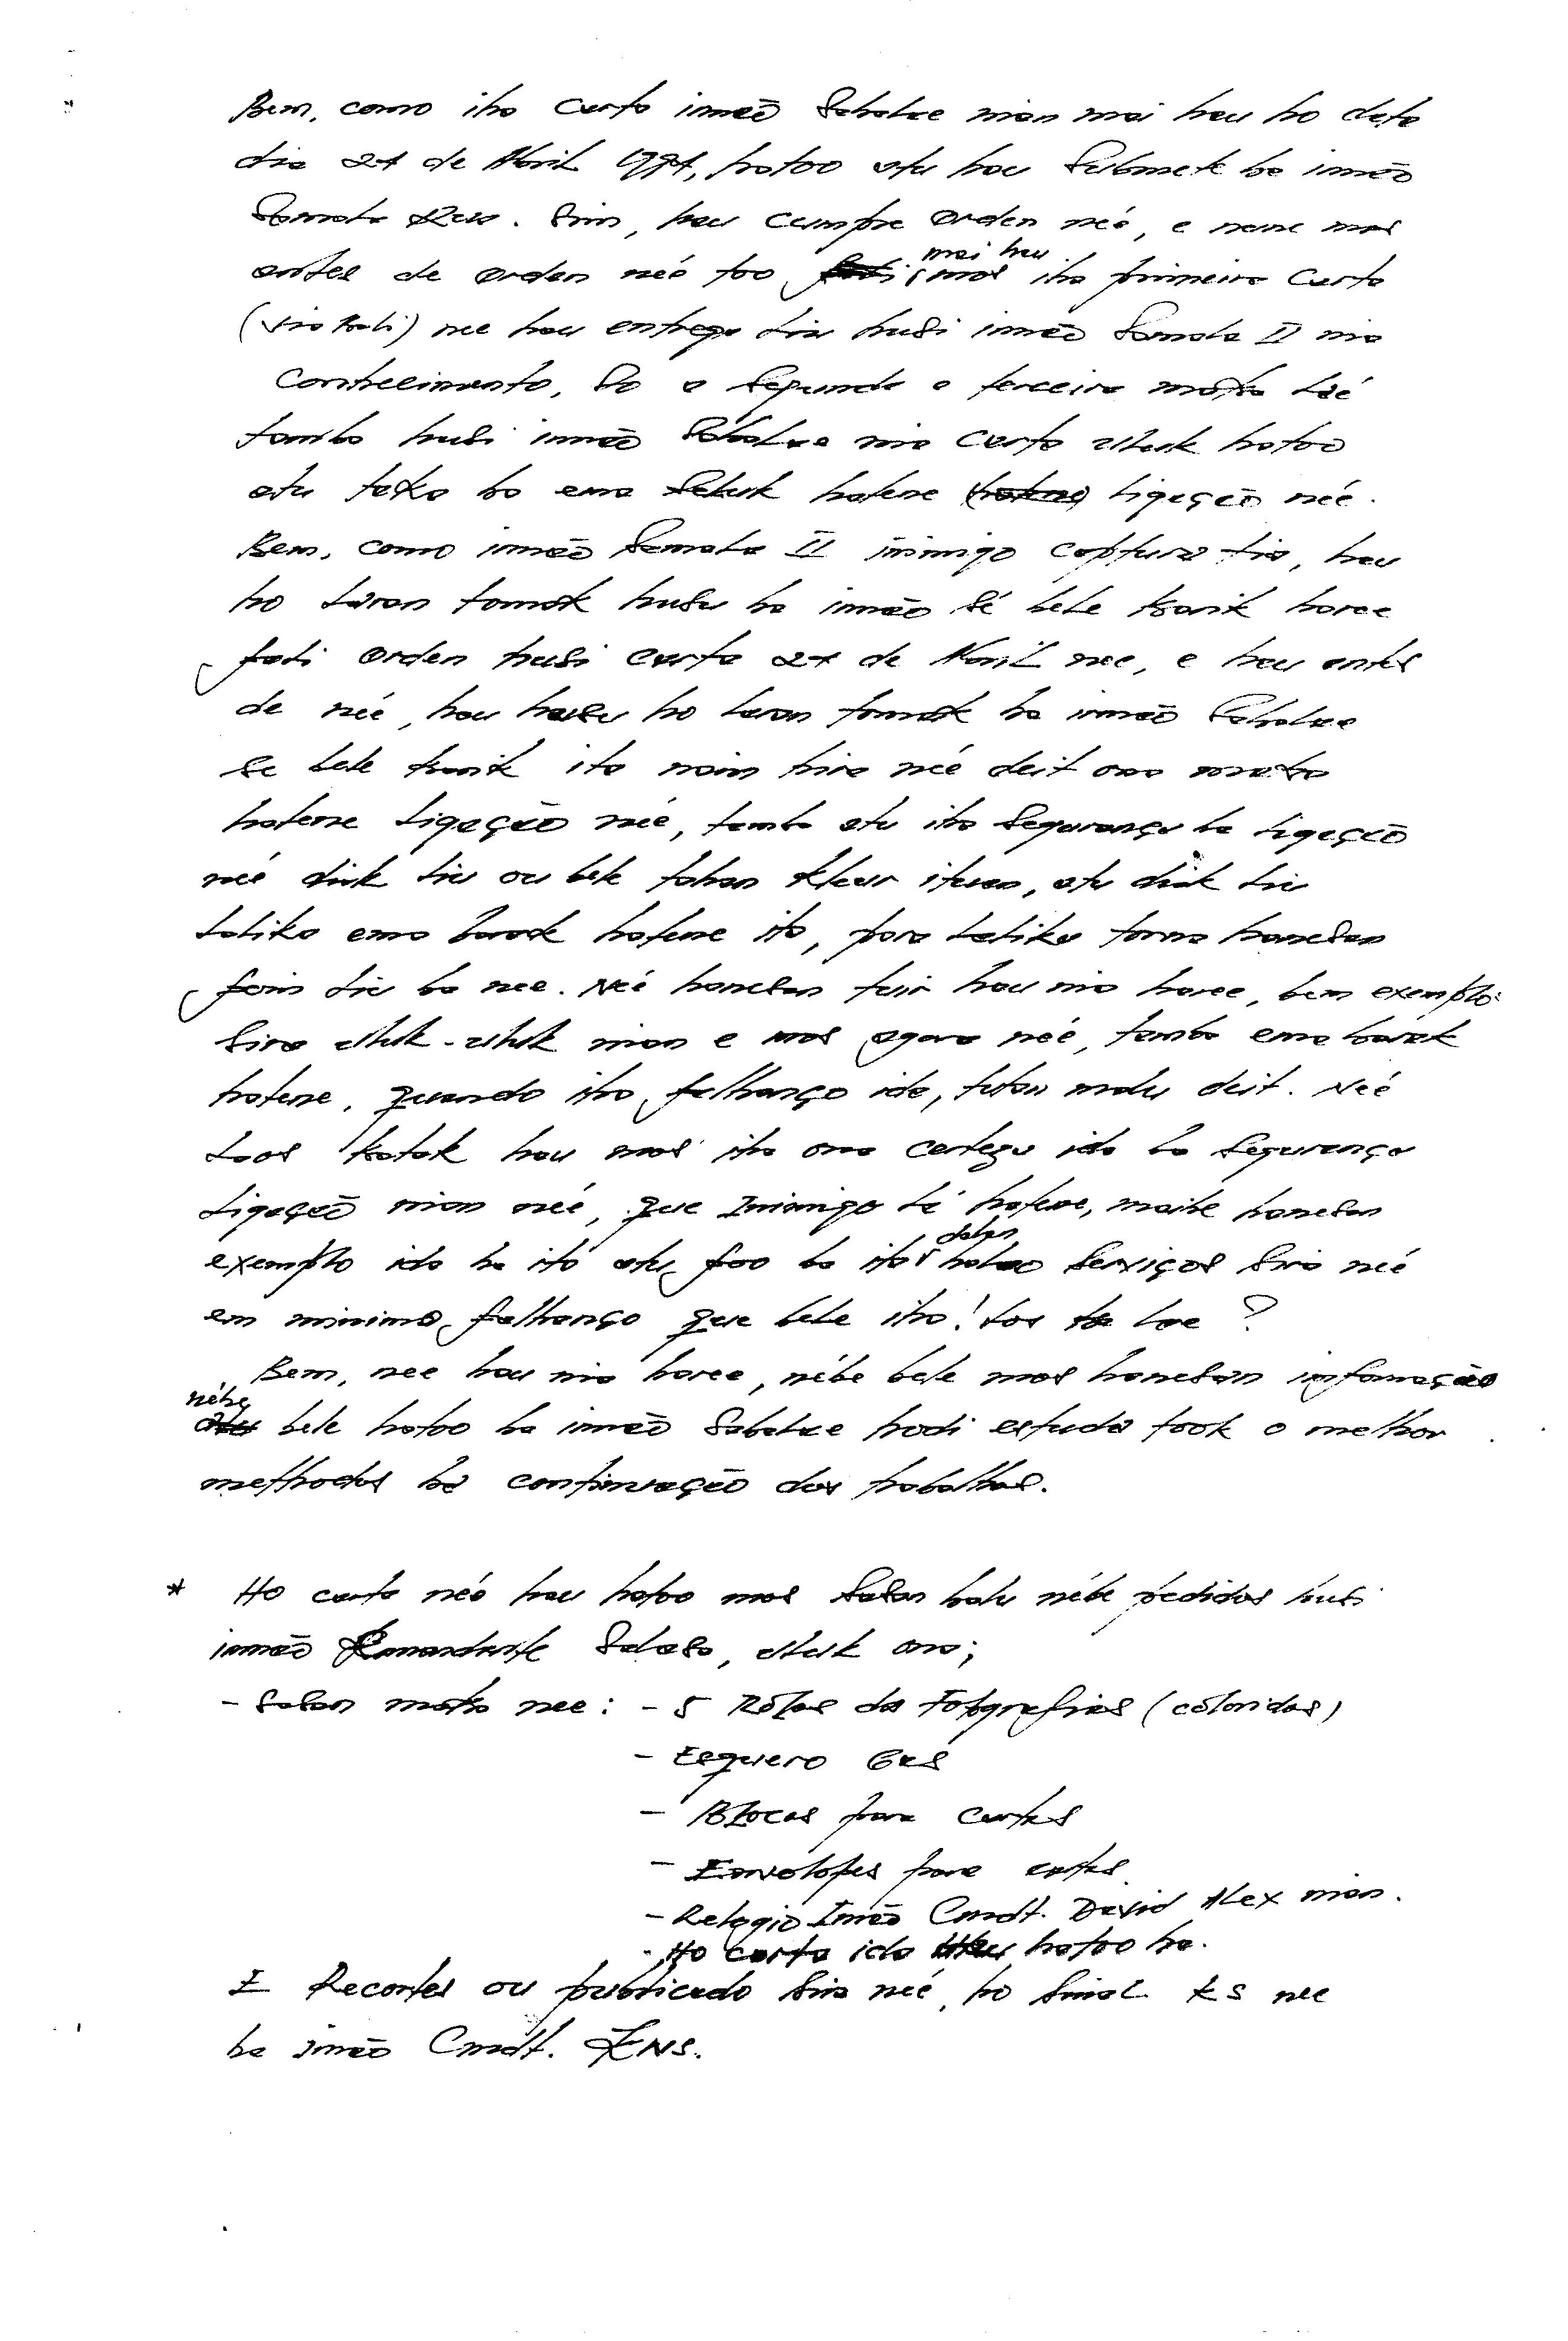 Bem, como iha carta irmão Sabalae nian mai hau ho data
dia 27 de Abril 1997, hatoo atu hau Submete ba irmão
Samala Rua. Sim, hau cumpre orden neé, e nene mos
antes de orden neé too mai hau mos iha primeira Carta
(via Bali) nee hau entrega liu husi irmão Samala II nia
Conhecimento, So a Segunda e terceira maka laé
tamba husi irmão Sabalae nia carta uluk hatoo
atu taka ba ema Seluk hatene ligação neé.
Bem, como irmão Samala II inimigo captura tia, hau
ho laran tomak husu ba irmão sé bele karik haree
fali orden husi carta 27 de Abril nee, e hau antes
de neé, hau husu ho laran tomak ba irmão Sabalae
se bele karik ita nain hira neé deit ona maka
hatene ligação neé, tamba atu iha Segurança ba ligação
neé diak liu ou bele tahan kleur ituan, atu diak liu
lalika ema barak hatene ita, para lalika torna hanesan
foin liu ba nee. Neé hanesan tuir hau nia haree, bem exemplo:
Sira uluk-uluk nian e mos agora neé, tamba ema barak
hatene, quando iha falhanço ida, tutan malu deit. Neé
laos katak hau mos iha ona certeza ida ba Segurança
ligação nian neé, que Inimigo la hatene, maibe hanesan
exemplo ida ba ita atu foo ba ita dalan halao Serviços Sira neé
em minimo falhanço que bele iha! Los ka lae?
Bem, nee hau nia haree, nébe bele mos hanesan informação
nébe bele hatoo ba irmão Sabalae hodi estuda took o melhor
methodos ba continuação dos trabalhos.
* Ho carta neé hau hatoo mos Sasan balu nébe pedidos husi
irmão Komandante Sabaso, uluk ona;
- Sasan maka nee: - 5 Rôlos da Fotografias (côloridas)
- Esquero Gas
- Blocos para cartas
- Envelopes para cartas
- Relogio Irmão Cmdt. David Alex nian.
- Ho carta ida hatoo ba.
E Recortes ou publicado Sira neé, ho Sinal KS nee
ba irmão Cmdt. KNS.